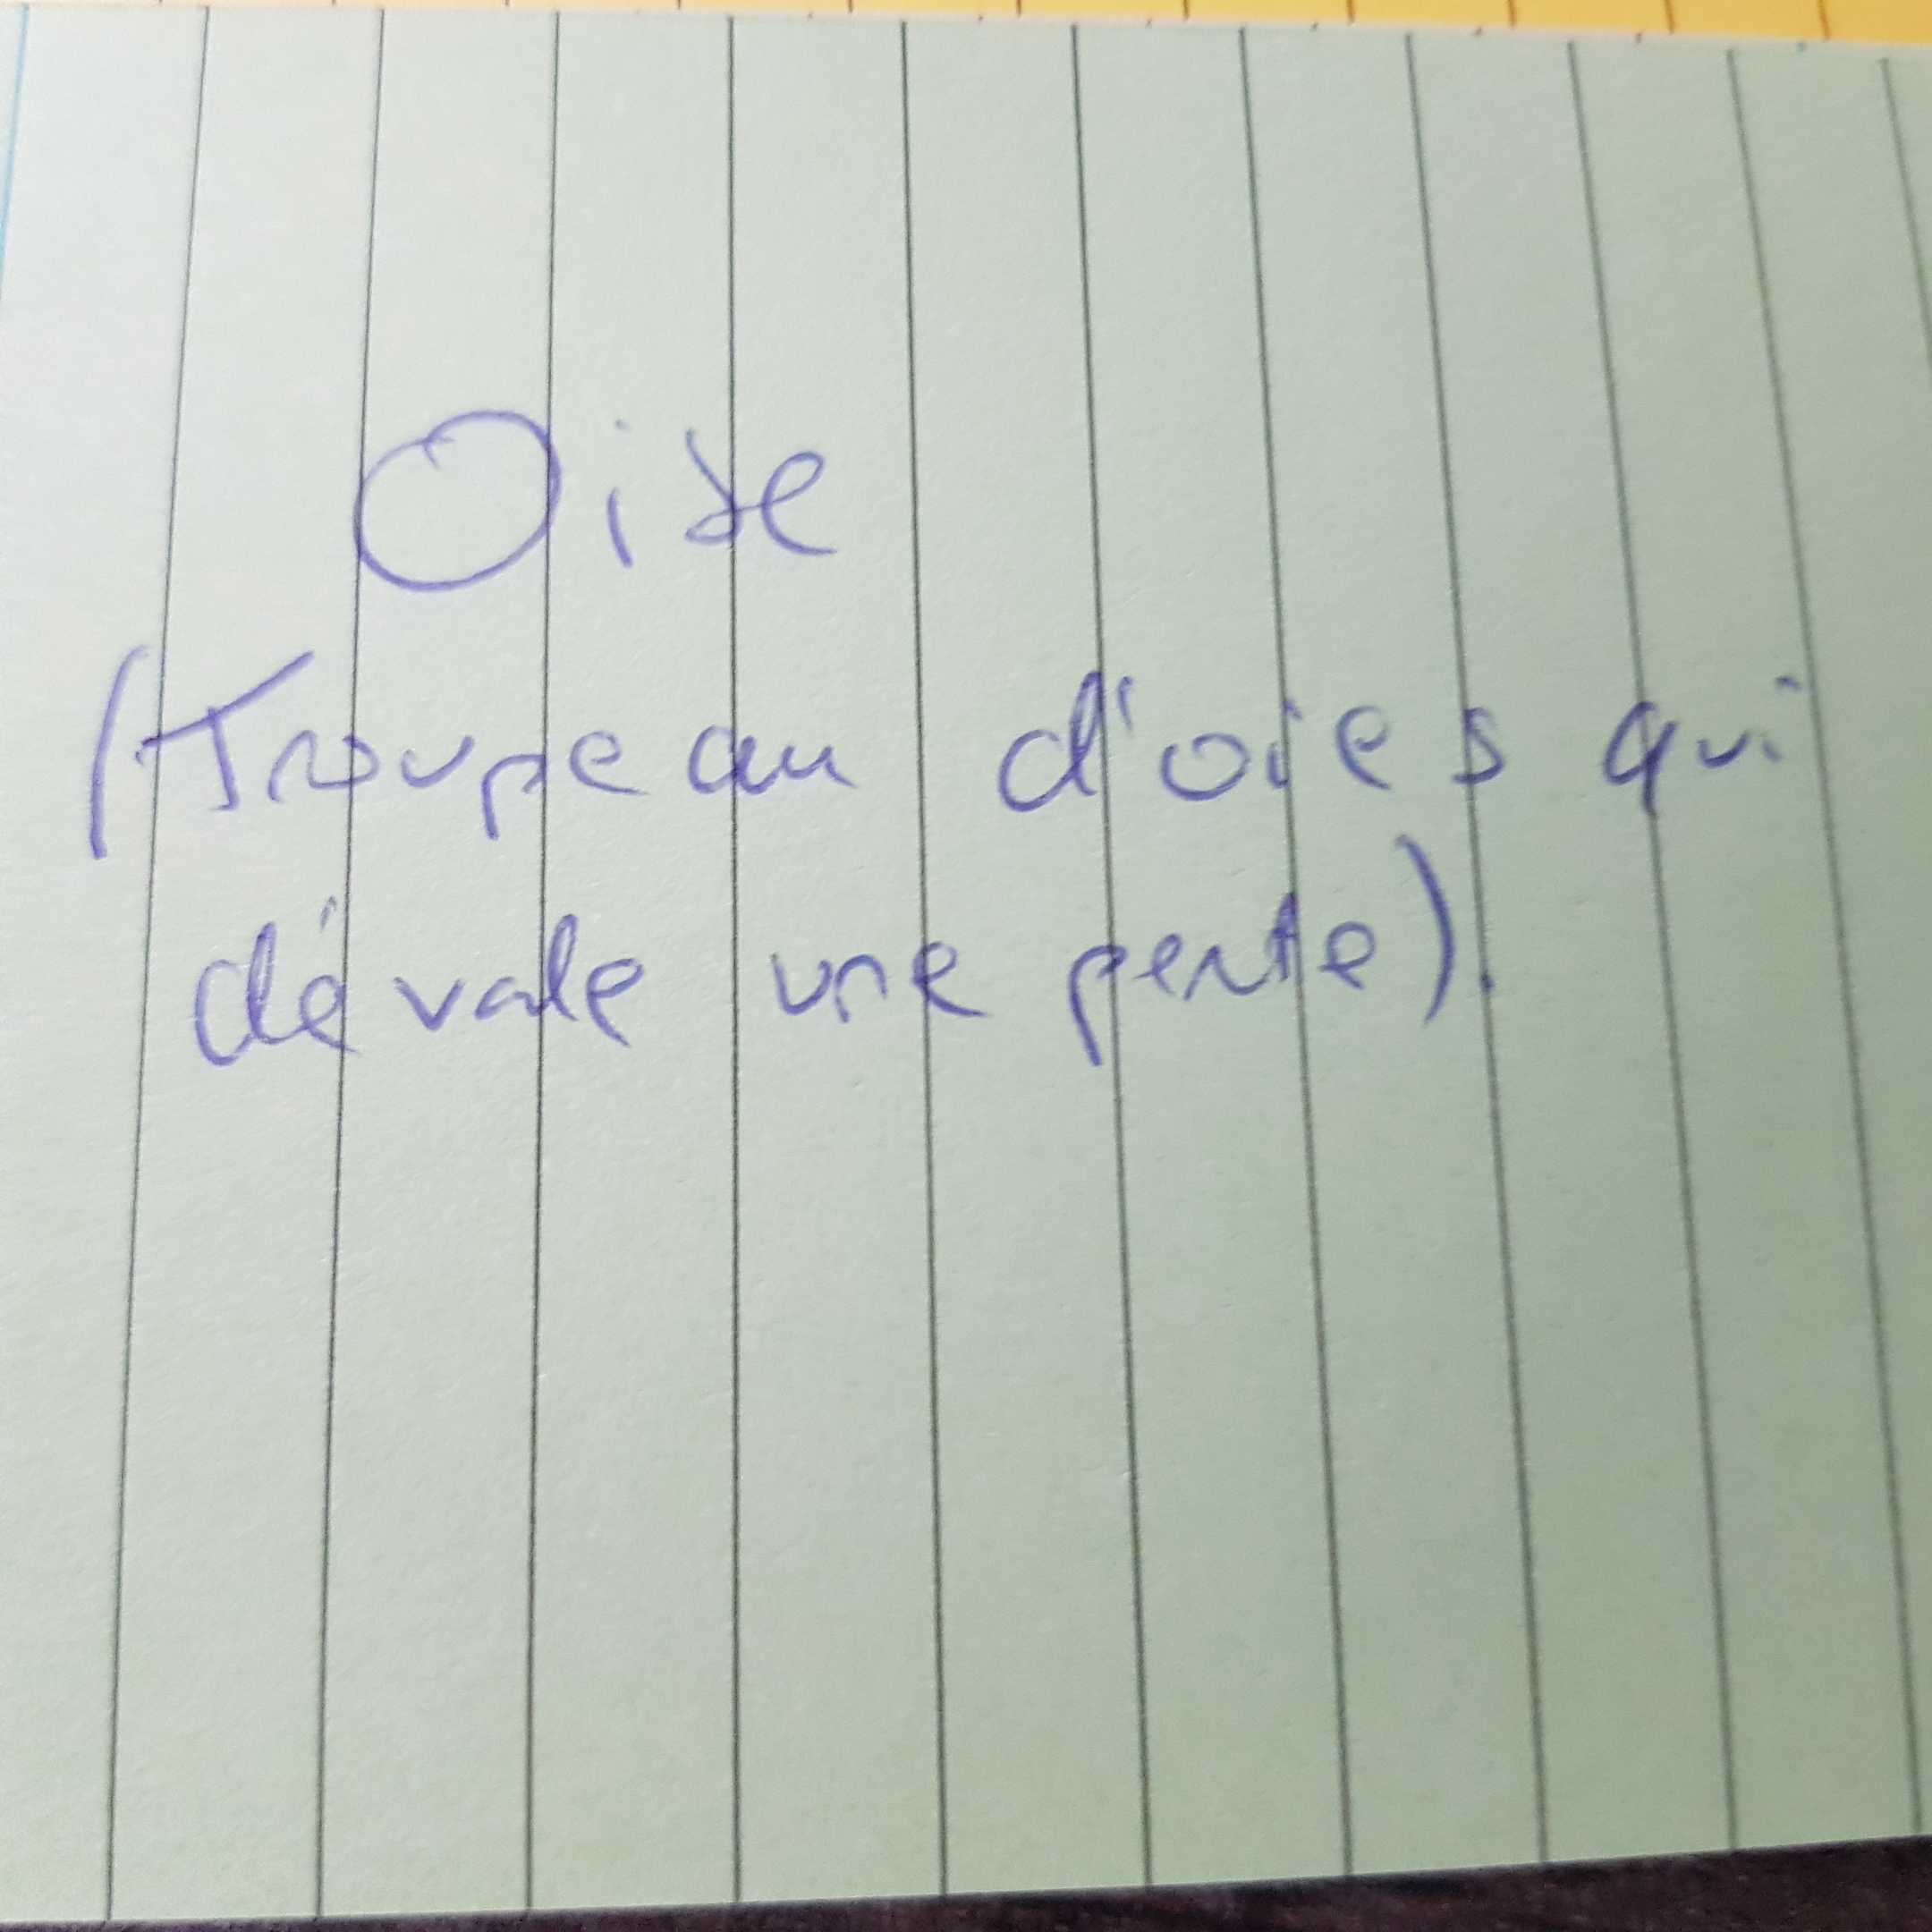 Oise
(Troupeau d'oies qui
dévale une pente).